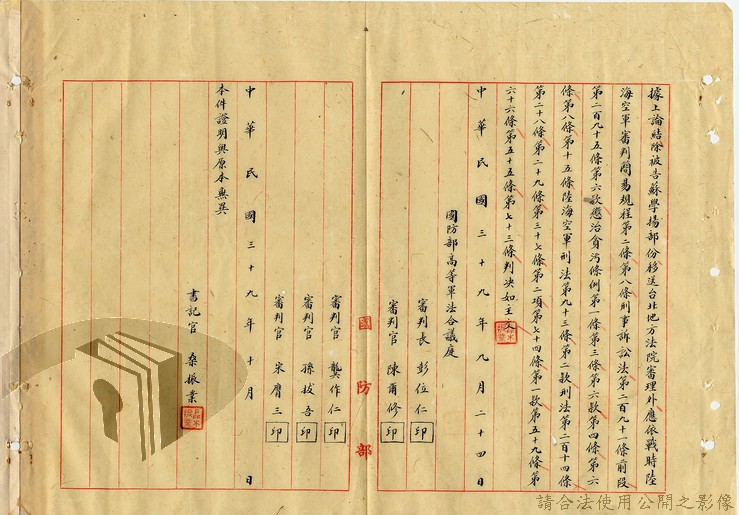 據上論結除被告蘇學揚部份移送台北地方法院審理外應依戰時陸
海空軍審判簡易規程第二條第八條刑事訴訟法第二百九十一條前段
第二百九十五條第六款懲治貪污條例第一條第三條第六款第四條第六
條第八條第十五條陸海空軍刑法第九十三條第二款刑法第二百十四條
第二十八條第二十九條第三十七條第二項第七十四條第一款第五十九條第
六十六條第五十五條第七十三條判決如主文
中華民國三十九年九月二十四日
國防部高等軍法合議庭
審判長 彭位仁 印
審判官 陳爾修 印
國防部
審判官 龔作仁 印
審判官 孫拔吾 印
審判官 宋膺三 印
中華民國三十九年十月 日
本件證明與原本無異
書記官 桑振業
請合法使用公開之影像